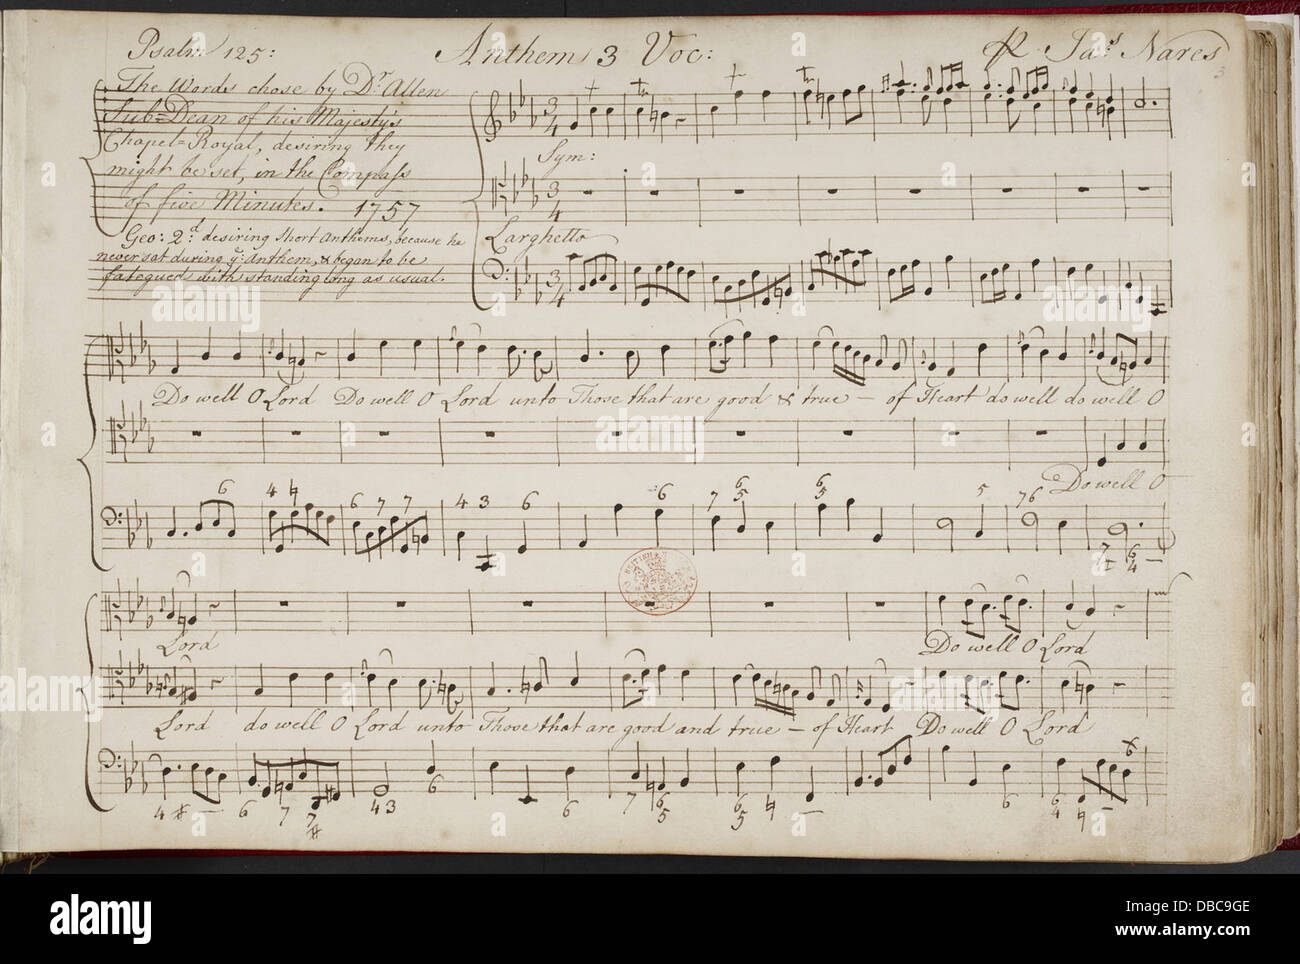 Psalm 125: Anthem 3 Voc: Dr. Jas. Nares
3
The Words chose by Dr. Allen
Sub=Dean of his Majestys
Chapel=Royal, desiring they
might be set, in the Compass
of five Minutes. 1757
Geo: 2d. desiring short Anthems, because he
never sat during ye. Anthem, & began to be
fategued with standing long as usual.
Sym:
Larghetto
Do well O Lord Do well O Lord unto Those that are good & true – of Heart do well do well O
Do well O
6 4 ♮ 6 7 7 4 3 6 6 7 6 5 6 5 5 7 6
Lord Do well O Lord
Lord do well O Lord unto Those that are good and true – of Heart Do well O Lord
4 # – 6 7 7 # 4 3 6 6 7 6 5 6 5 ♮ – 6 6 4 ♮ –
alamy
a
alamy stock photo
Image ID: DBC9GE
www.alamy.com